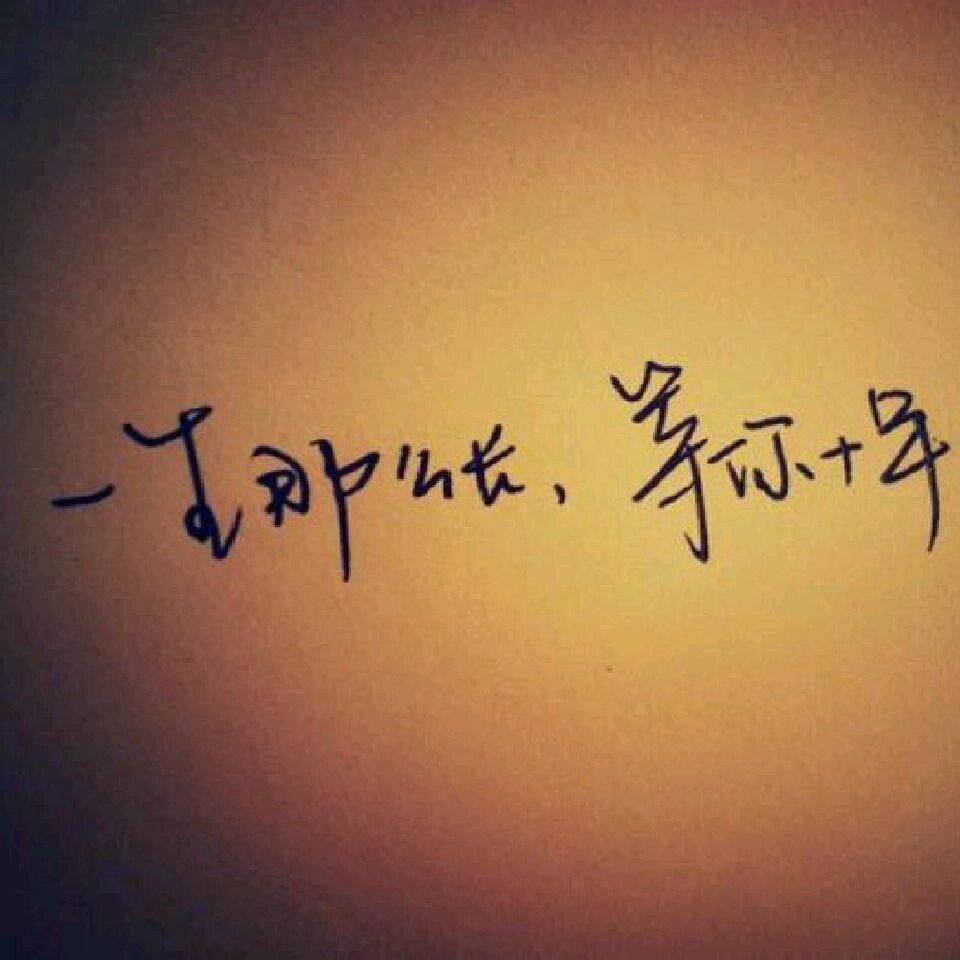 一生那么长，等你十年